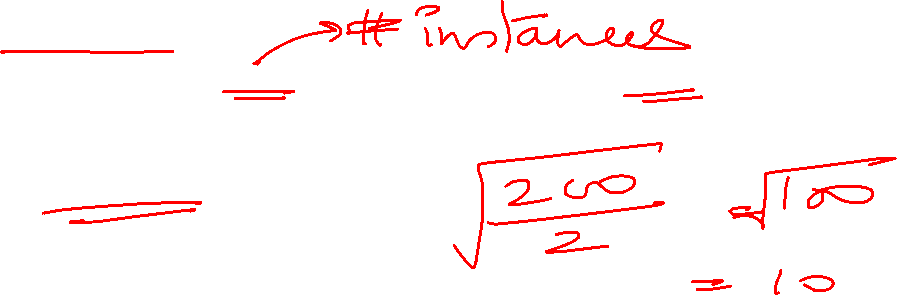 → # instances
√(200/2) = √100
= 10